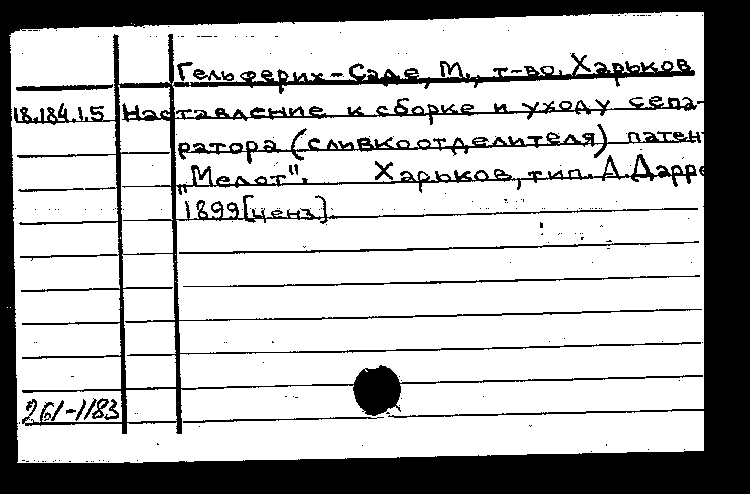 Гельферих-Саде, М., т-во. Харьков
18.184.1.5 Наставление к сборке и уходу сепа-
ратора (сливкоотделителя) патен
"Мелот". Харьков, тип. А. Дарре
1899 [ценз].
261-1183